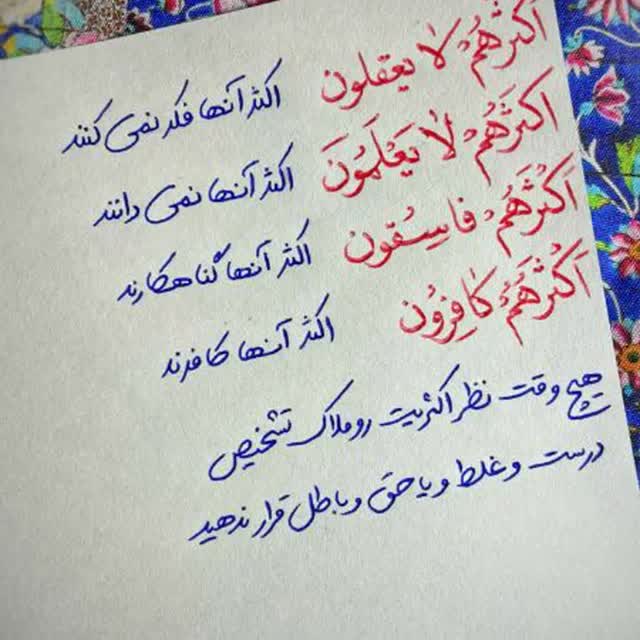 اَکثَرُهُمْ لا یعقلون اکثر آنها فکر نمی کنند
اَکثَرُهُمْ لا یَعْلَمُونَ اکثر آنها نمی دانند
اَکْثَرُهُمْ فاسِقون اکثر آنها گناهکارند
اَکْثَرُهُمُ کافِرُون اکثر آنها کافرند
هیچ وقت نظر اکثریت رو ملاک تشخیص
درست و غلط و یا حق و باطل قرار ندهید